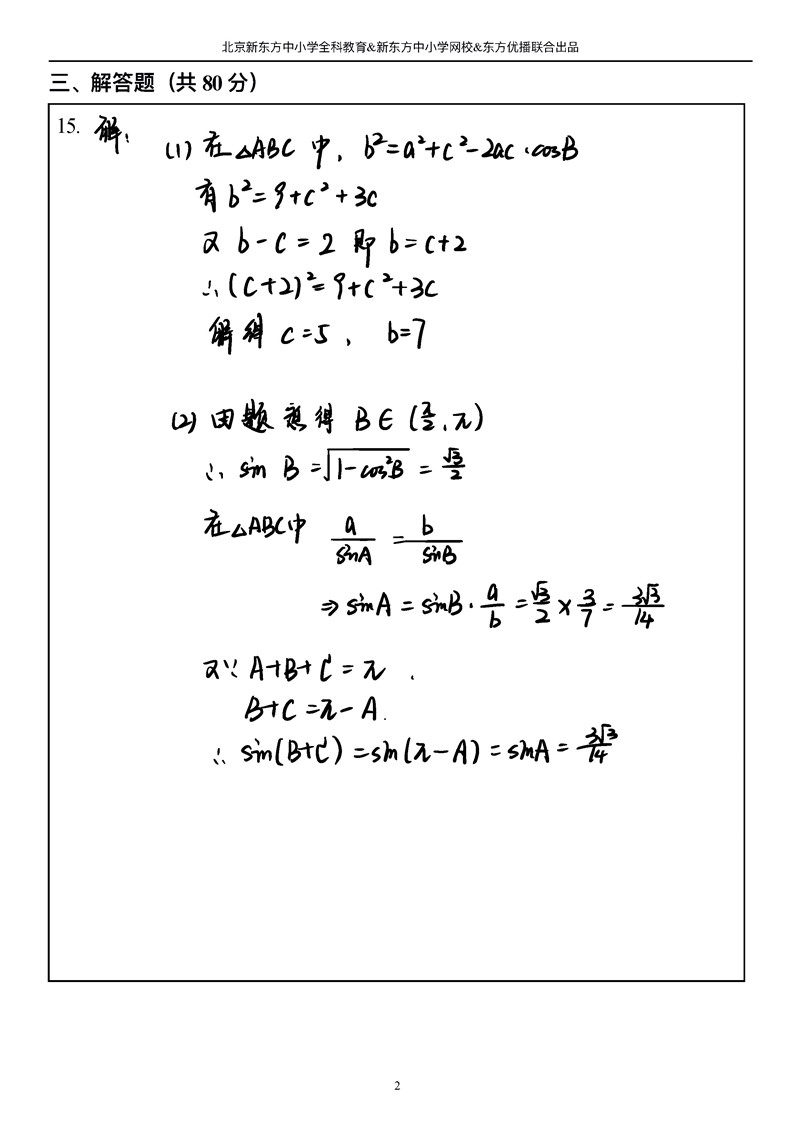 北京新东方中小学全科教育&新东方中小学网校&东方优播联合出品
三、解答题（共 80 分）
15. 解：
(1) 在△ABC 中，b²=a²+c²-2ac·cosB
有 b²=9+c²+3c
又 b-c=2 即 b=c+2
∴(c+2)²=9+c²+3c
解得 c=5，b=7
(2) 由题意得 B∈(π/2,π)
∴ sin B=√(1-cos²B) = √3/2
在△ABC中 a/sinA = b/sinB
⇒ sinA = sinB·a/b = √3/2 × 3/7 = 3√3/14
又∵ A+B+C=π，
B+C=π-A.
∴ sin(B+C)=sin(π-A)=sinA=3√3/14
2